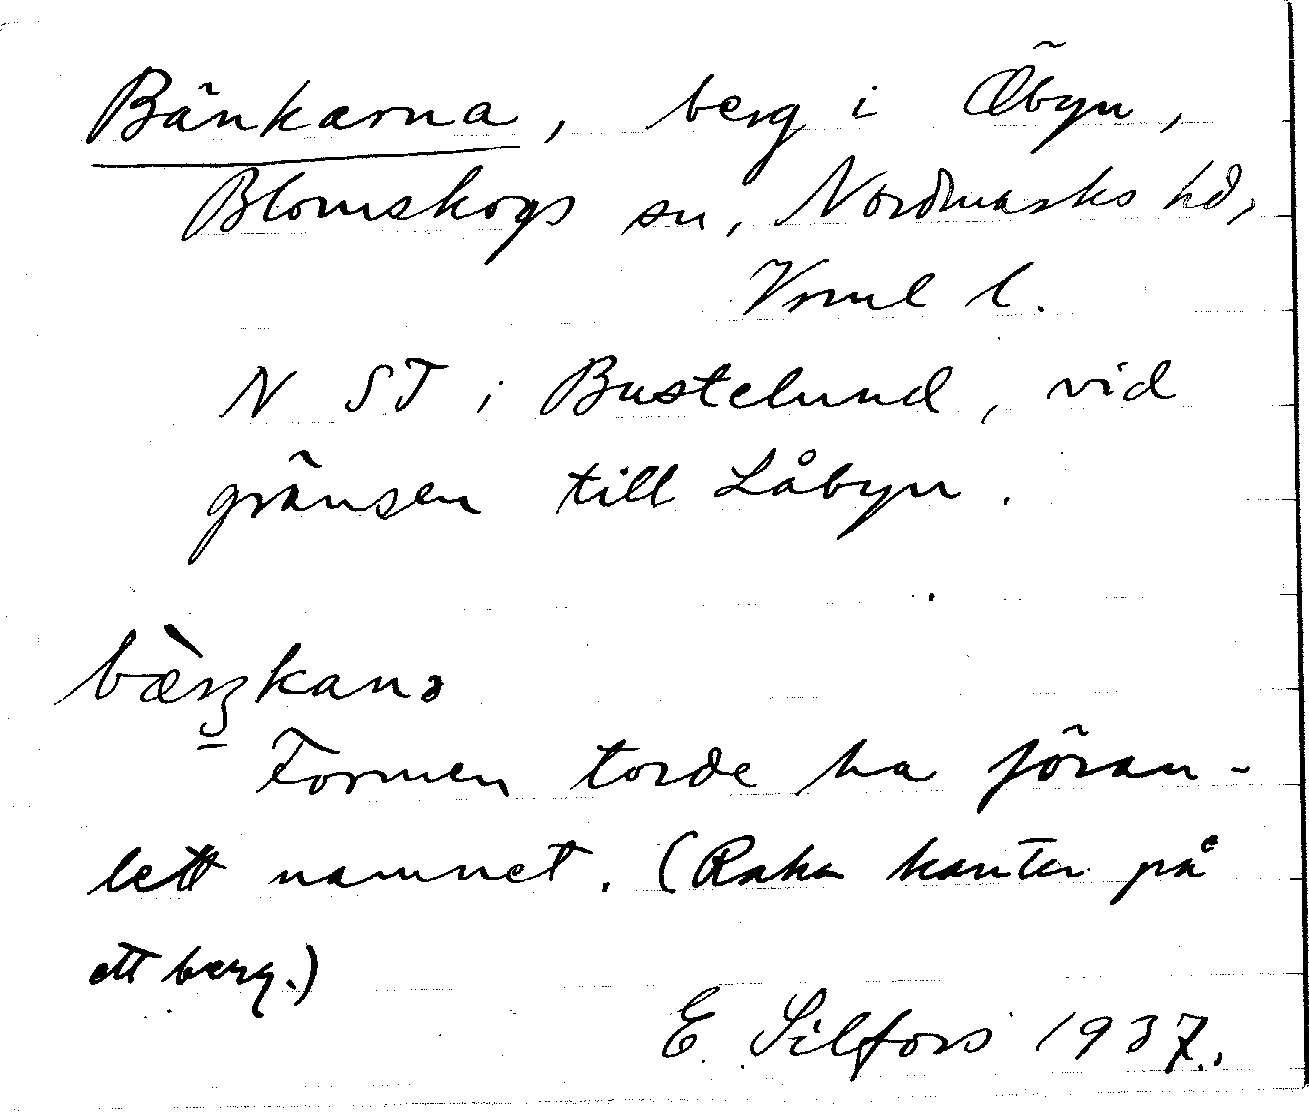 Bänkarna, berg i Öbyn,
Blomskogs sn, Nordmarks hd,
Vrml l.
N ST i Bustelund, vid
gränsen till Låbyn.
bæ̀ŋkanə
Formen torde ha föran-
lett namnet. (Raka kanter på
ett berg.)
E. Silfors 1937.